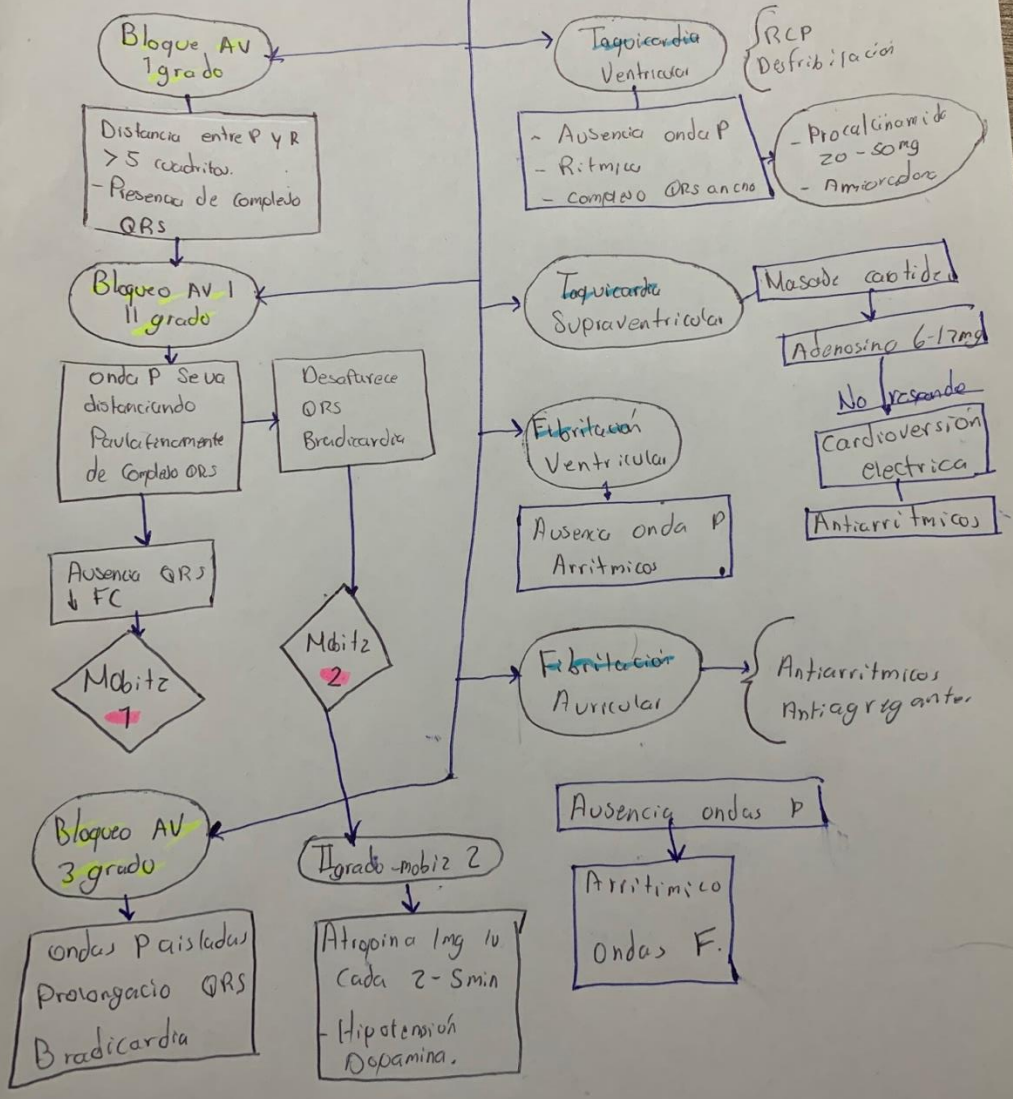 Bloque AV
1 grado
Distancia entre P y R
> 5 cuadritos.
- Presencia de complejo
QRS
Bloqueo AV
II grado
onda P Se va
distanciando
Paulatinamente
de complejo QRS
Desaparece
QRS
Bradicardia
Ausencia QRS
↓ FC
Mobitz
1
Mobitz
2
Bloqueo AV
3 grado
ondas P aisladas
Prolongacio QRS
Bradicardia
II grado - mobiz 2
Atropina 1mg IV
Cada 2-5min
- Hipotensión
Dopamina.
Taquicardia
Ventricular
RCP
Desfribilación
- Ausencia onda P
- Ritmico
- complejo QRS ancho
- Procalcinamida
20-50mg
- Amiorodona
Taquicardia
Supraventricular
Masade carotideo
Adenosino 6-12mg
No responde
Cardioversión
electrica
Antiarritmicos
Fibritación
Ventricular
Ausencia onda P
Arritmicos
Fibritación
Auricular
Antiarritmicos
Antiagregantes
Ausencia ondas P
Arritimico
ondas F.